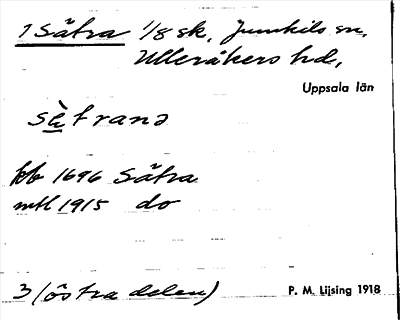 1 Sätra 1/8 sk, Jumkils sn,
Ulleråkers hd,
Uppsala län
sè̱tranə
kb 1696 Sätra
mtl 1915 do
3 (östra delen)
P. M. Lijsing 1918